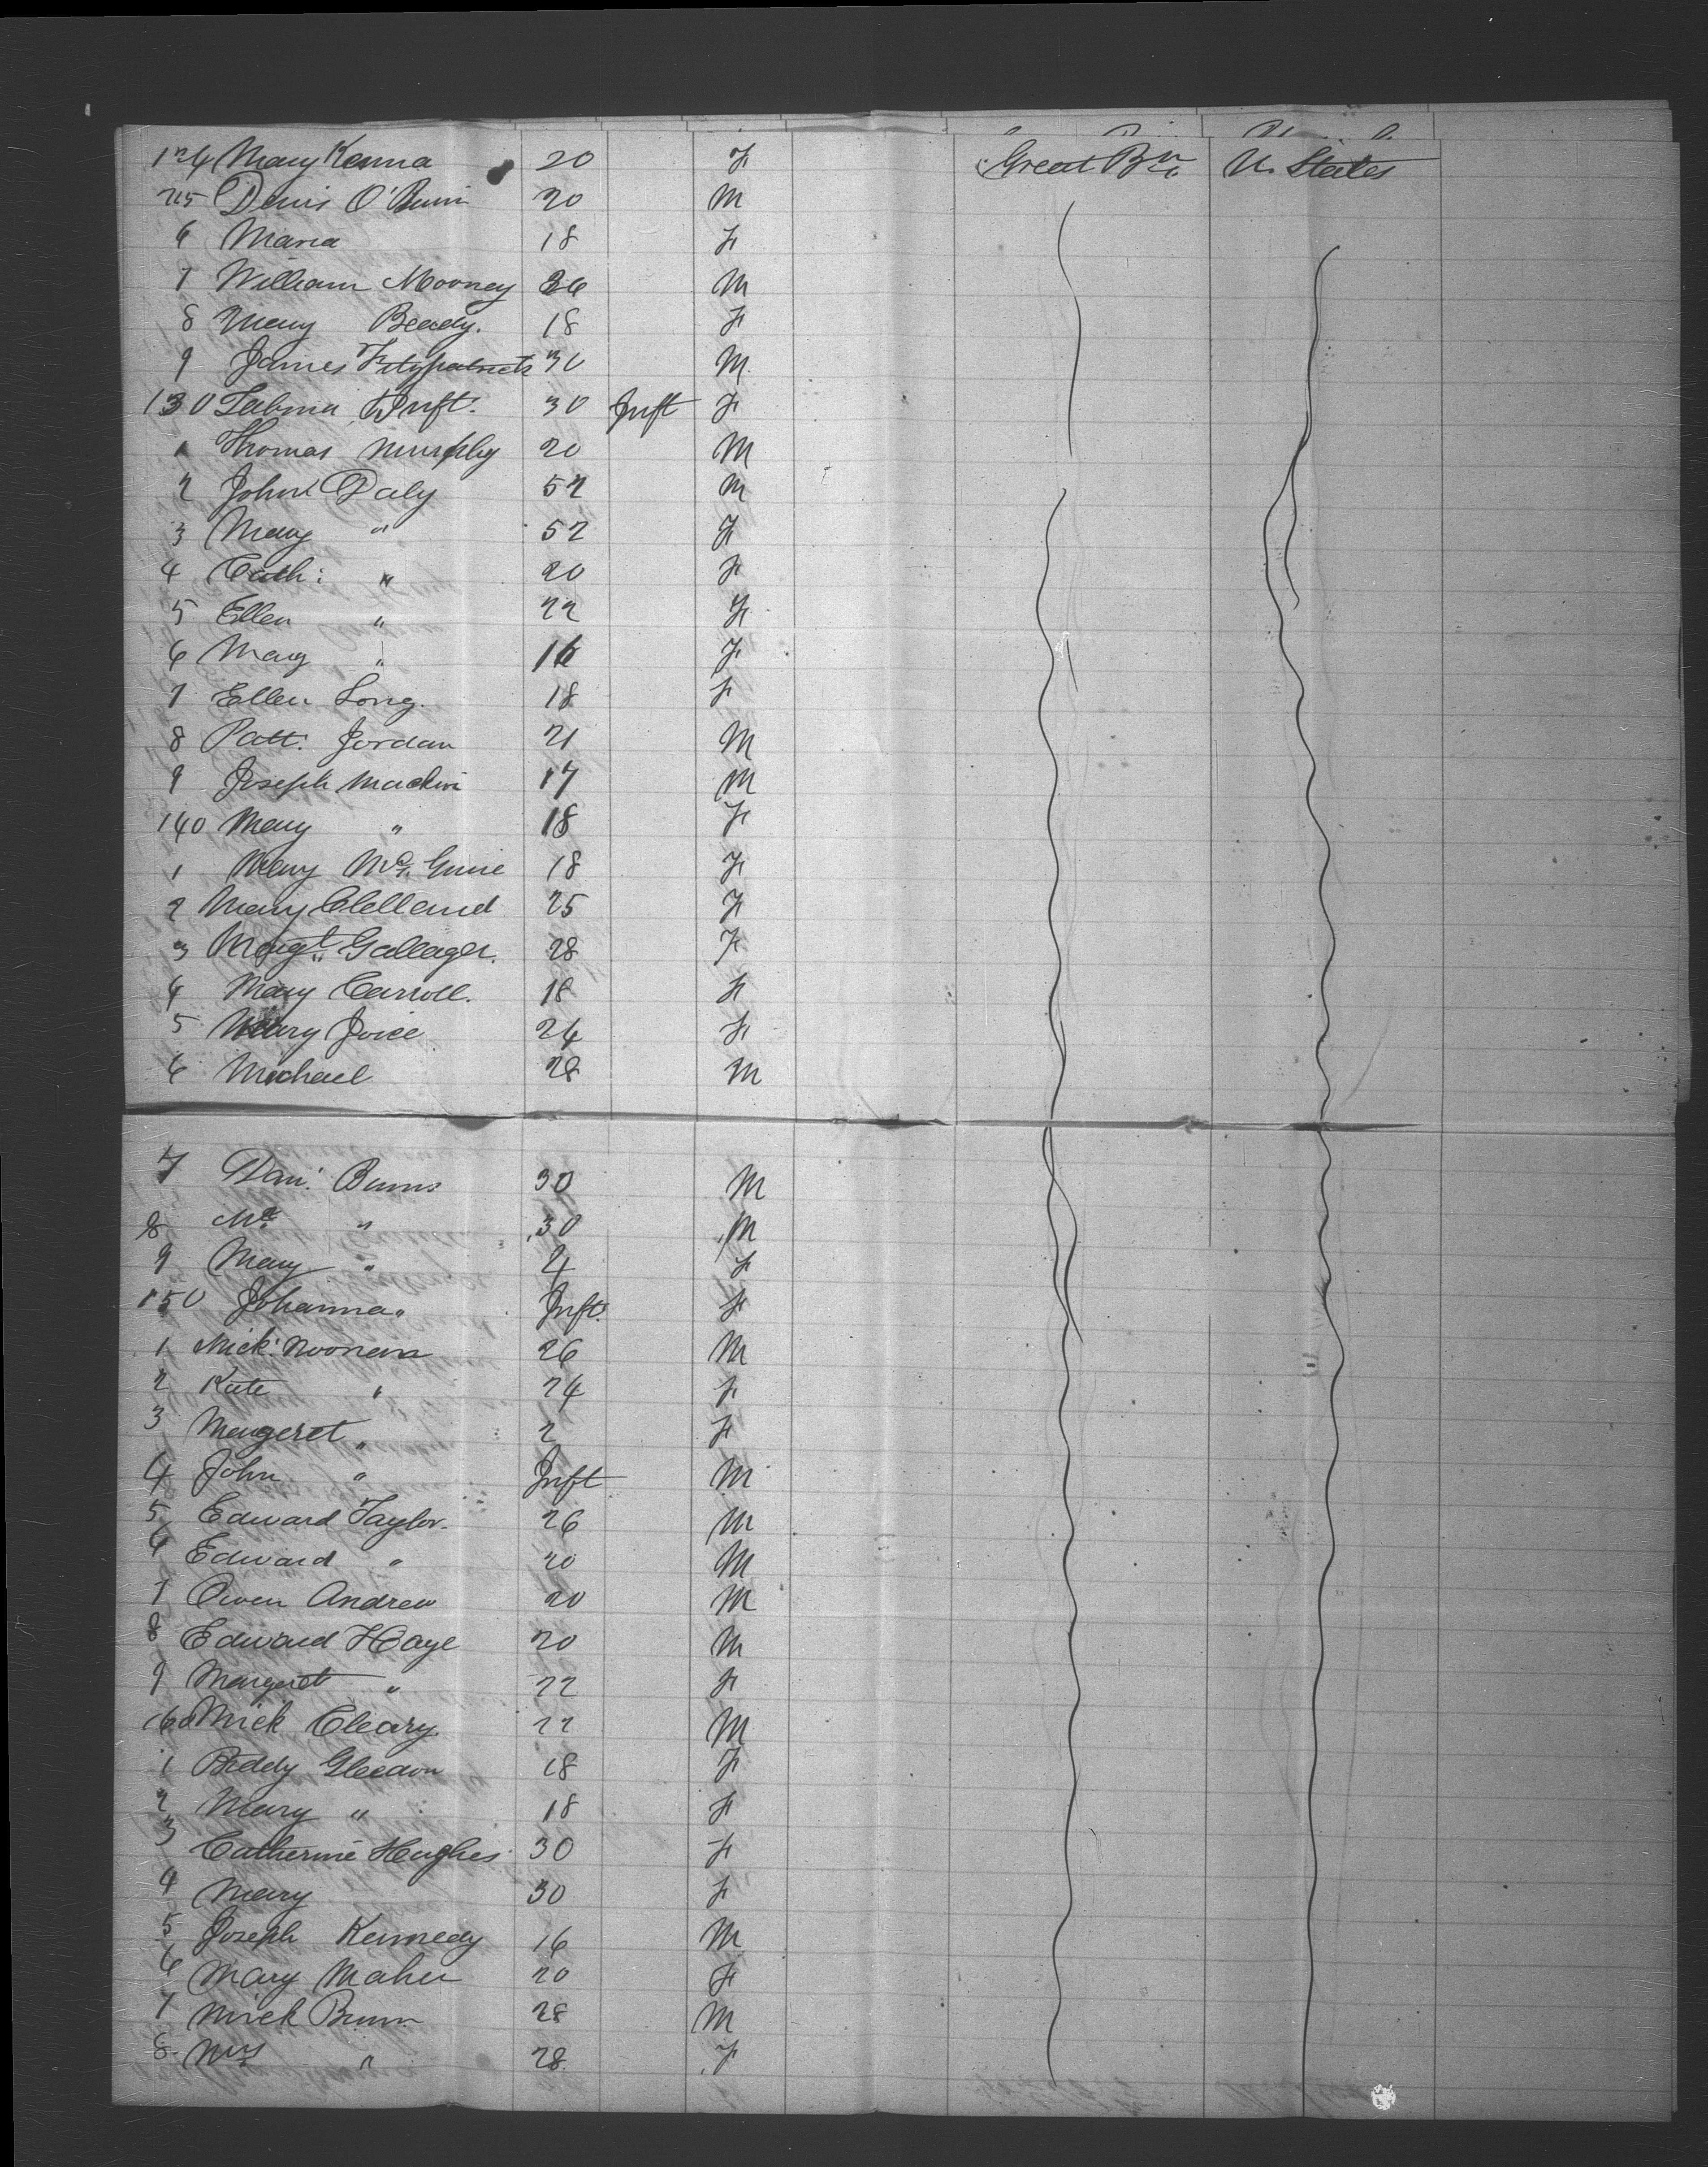 124 Mary Kenna 20 F Great Bn U. States
125 Denis O'Brien 20 M
6 Maria 18 F
7 William Mooney 26 M
8 Mary Beady. 18 F
9 James Fitzpatrick 30 M
130 Inft. 30 Inft F
1 Thomas Murphy 20 M
2 John Daly 52 M
3 Mary " 52 F
4 Cath: " 20 F
5 Ellen " 22 F
6 Mary " 16 F
7 Ellen Long. 18 F
8 Patt. Jordan 21 M
9 Joseph Mackin 17 M
140 Mary " 18 F
1 Mary McGuire 18 F
2 Mary Clelland 25 F
3 Margt. Gallager. 28 F
4 Mary Carroll. 18 F
5 Mary Joice 24 F
6 Michael 28 M
7 Dan. Burns 30 M
8 " 30 M
9 Mary " 4 F
150 Johanna " Inft. F
1 Mick. Noonan 26 M
2 Kate " 24 F
3 Margeret " 2 F
4 John " Inft M
5 Edward Taylor. 26 M
6 Edward " 20 M
7 Owen Andrew 20 M
8 Edward Haye 20 M
9 Margaret " 22 F
160 Mick Cleary. 22 M
1 Biddy Gleeson 18 F
2 Mary " 18 F
3 Catherine Hughes 30 F
4 Mary 30 F
5 Joseph Kennedy 16 M
6 Mary Maher 20 F
7 Mick 28 M
8 Mrs " 28 F